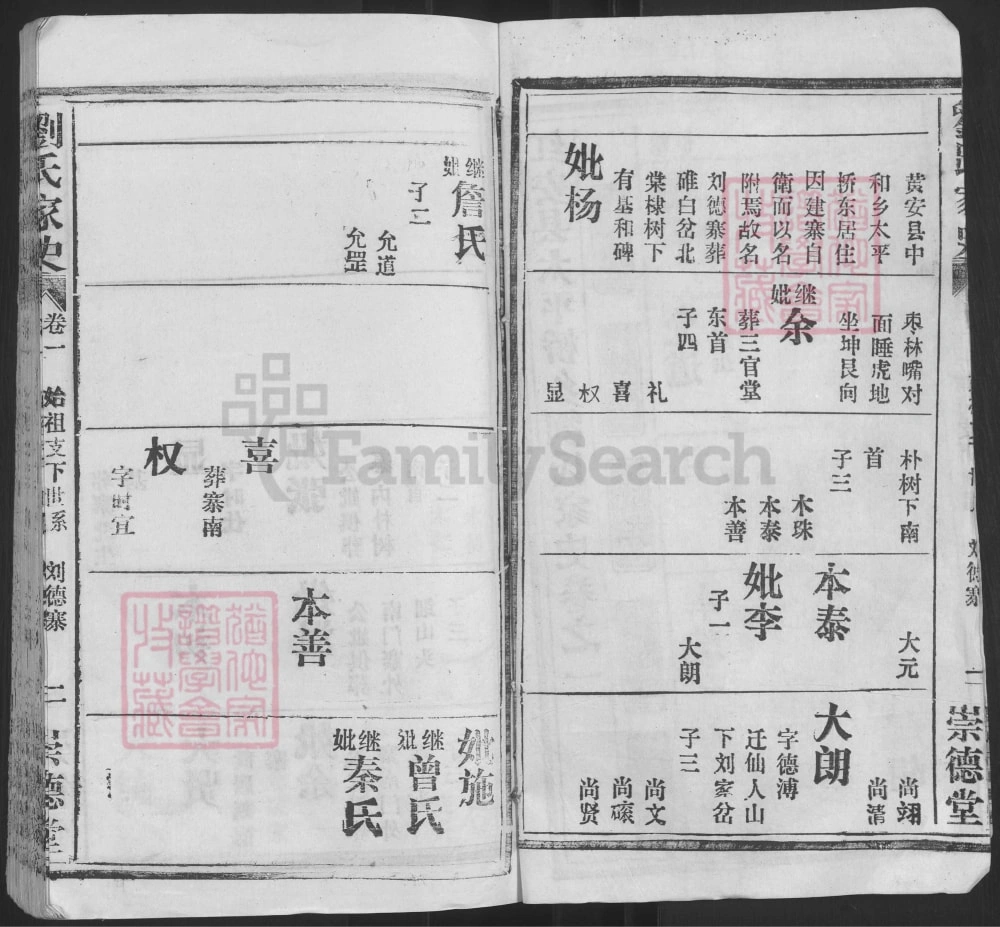 黄安县中
和乡太平
桥东居住
因建寨自
衛而以名
附焉故名
刘德寨葬
碓白岔北
棠棣树下
有基和碑
妣杨
枣林嘴对
面睡虎地
坐坤艮向
继妣余
葬三官堂
东首
子四
礼
喜
权
显
朴树下南
首
子三
木珠
本泰
本善
大元
本泰
妣李
子一
大朗
尚翊
尚清
大朗
字德溥
迁仙人山
下刘家岔
子三
尚文
尚磙
尚贤
刘德寨
二
崇德堂
继妣詹氏
子二
允道
允罡
喜
葬寨南
权
字时宜
本善
妣施
继妣曾氏
继妣秦氏
劉氏家史
卷一
始祖支下世系
刘德寨
二
崇德堂
FamilySearch